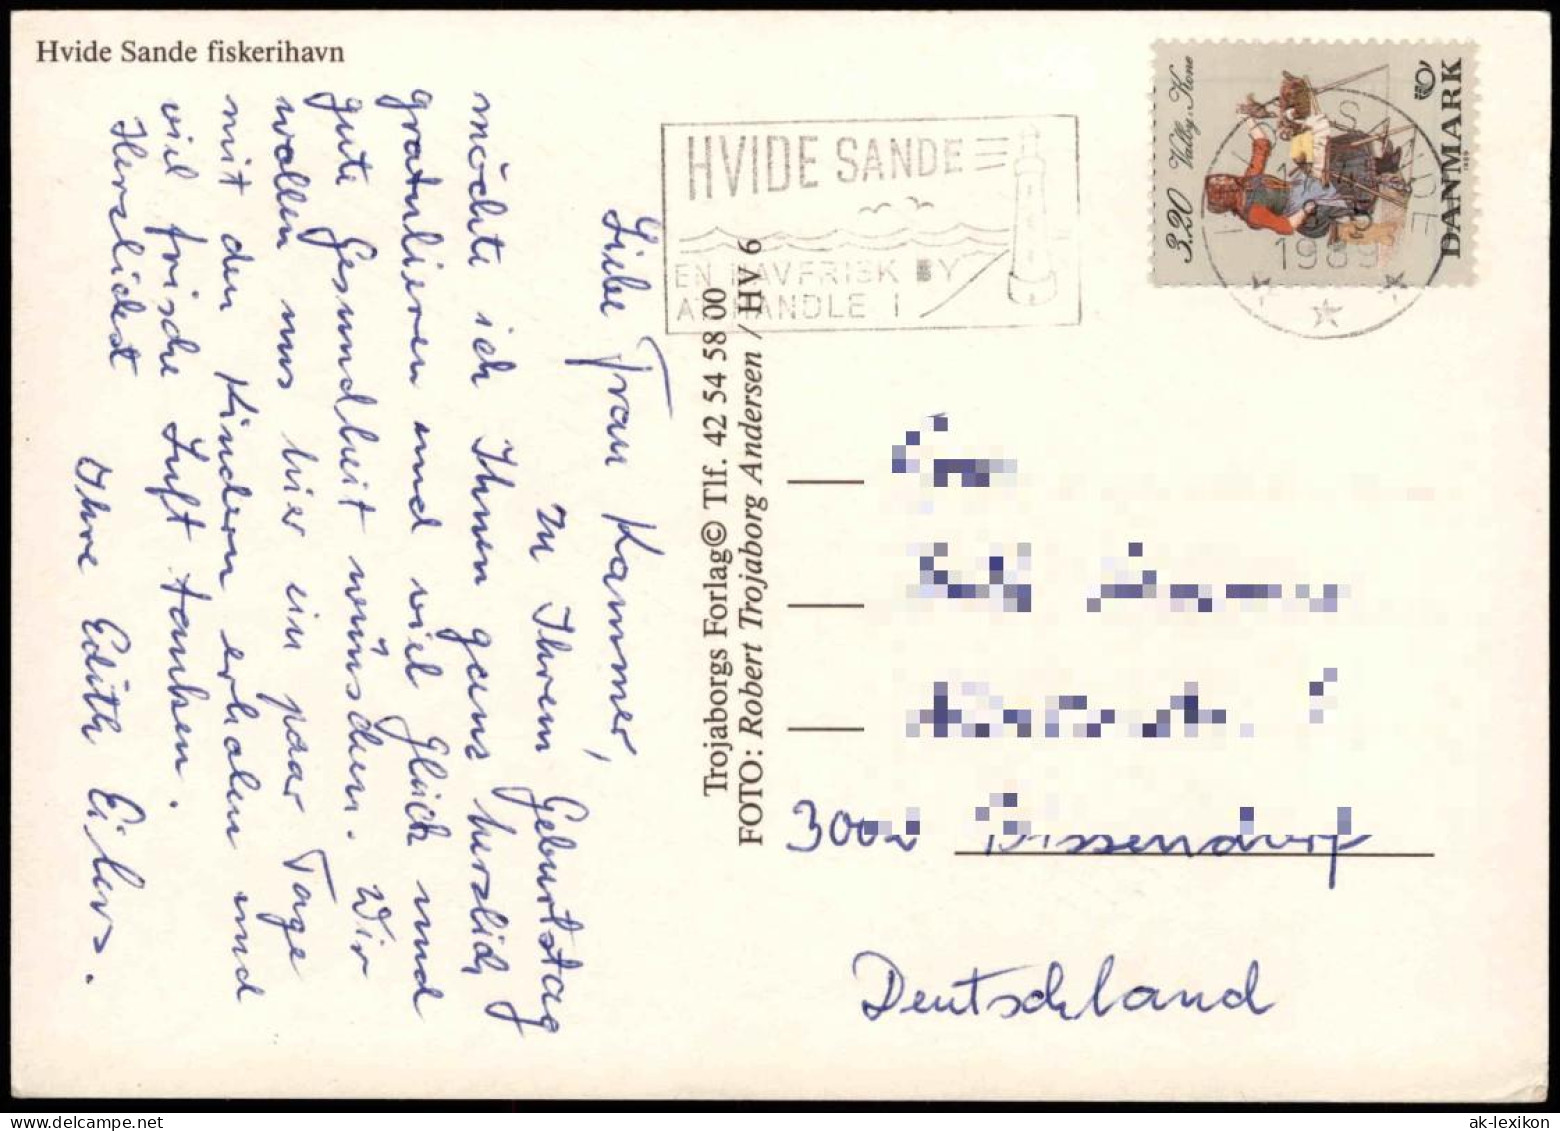 Hvide Sande fiskerihavn
Liebe Frau Kammer,
zu Ihrem Geburtstag
möchte ich Ihnen ganz herzlich
gratulieren und viel Glück und
gute Gesundheit wünschen. Wir
wollen uns hier ein paar Tage
mit den Kindern erholen und
viel frische Luft tanken.
Herzlichst
Ihre Edith Eilers.
Trojaborgs Forlag© Tlf. 42 54 58 00
FOTO: Robert Trojaborg Andersen / HV 6
HVIDE SANDE
EN HAVFRISK BY
AT HANDLE I
3.20 Valby Kone
DANMARK
1989
Bissendorf
Deutschland
ak-lexikon